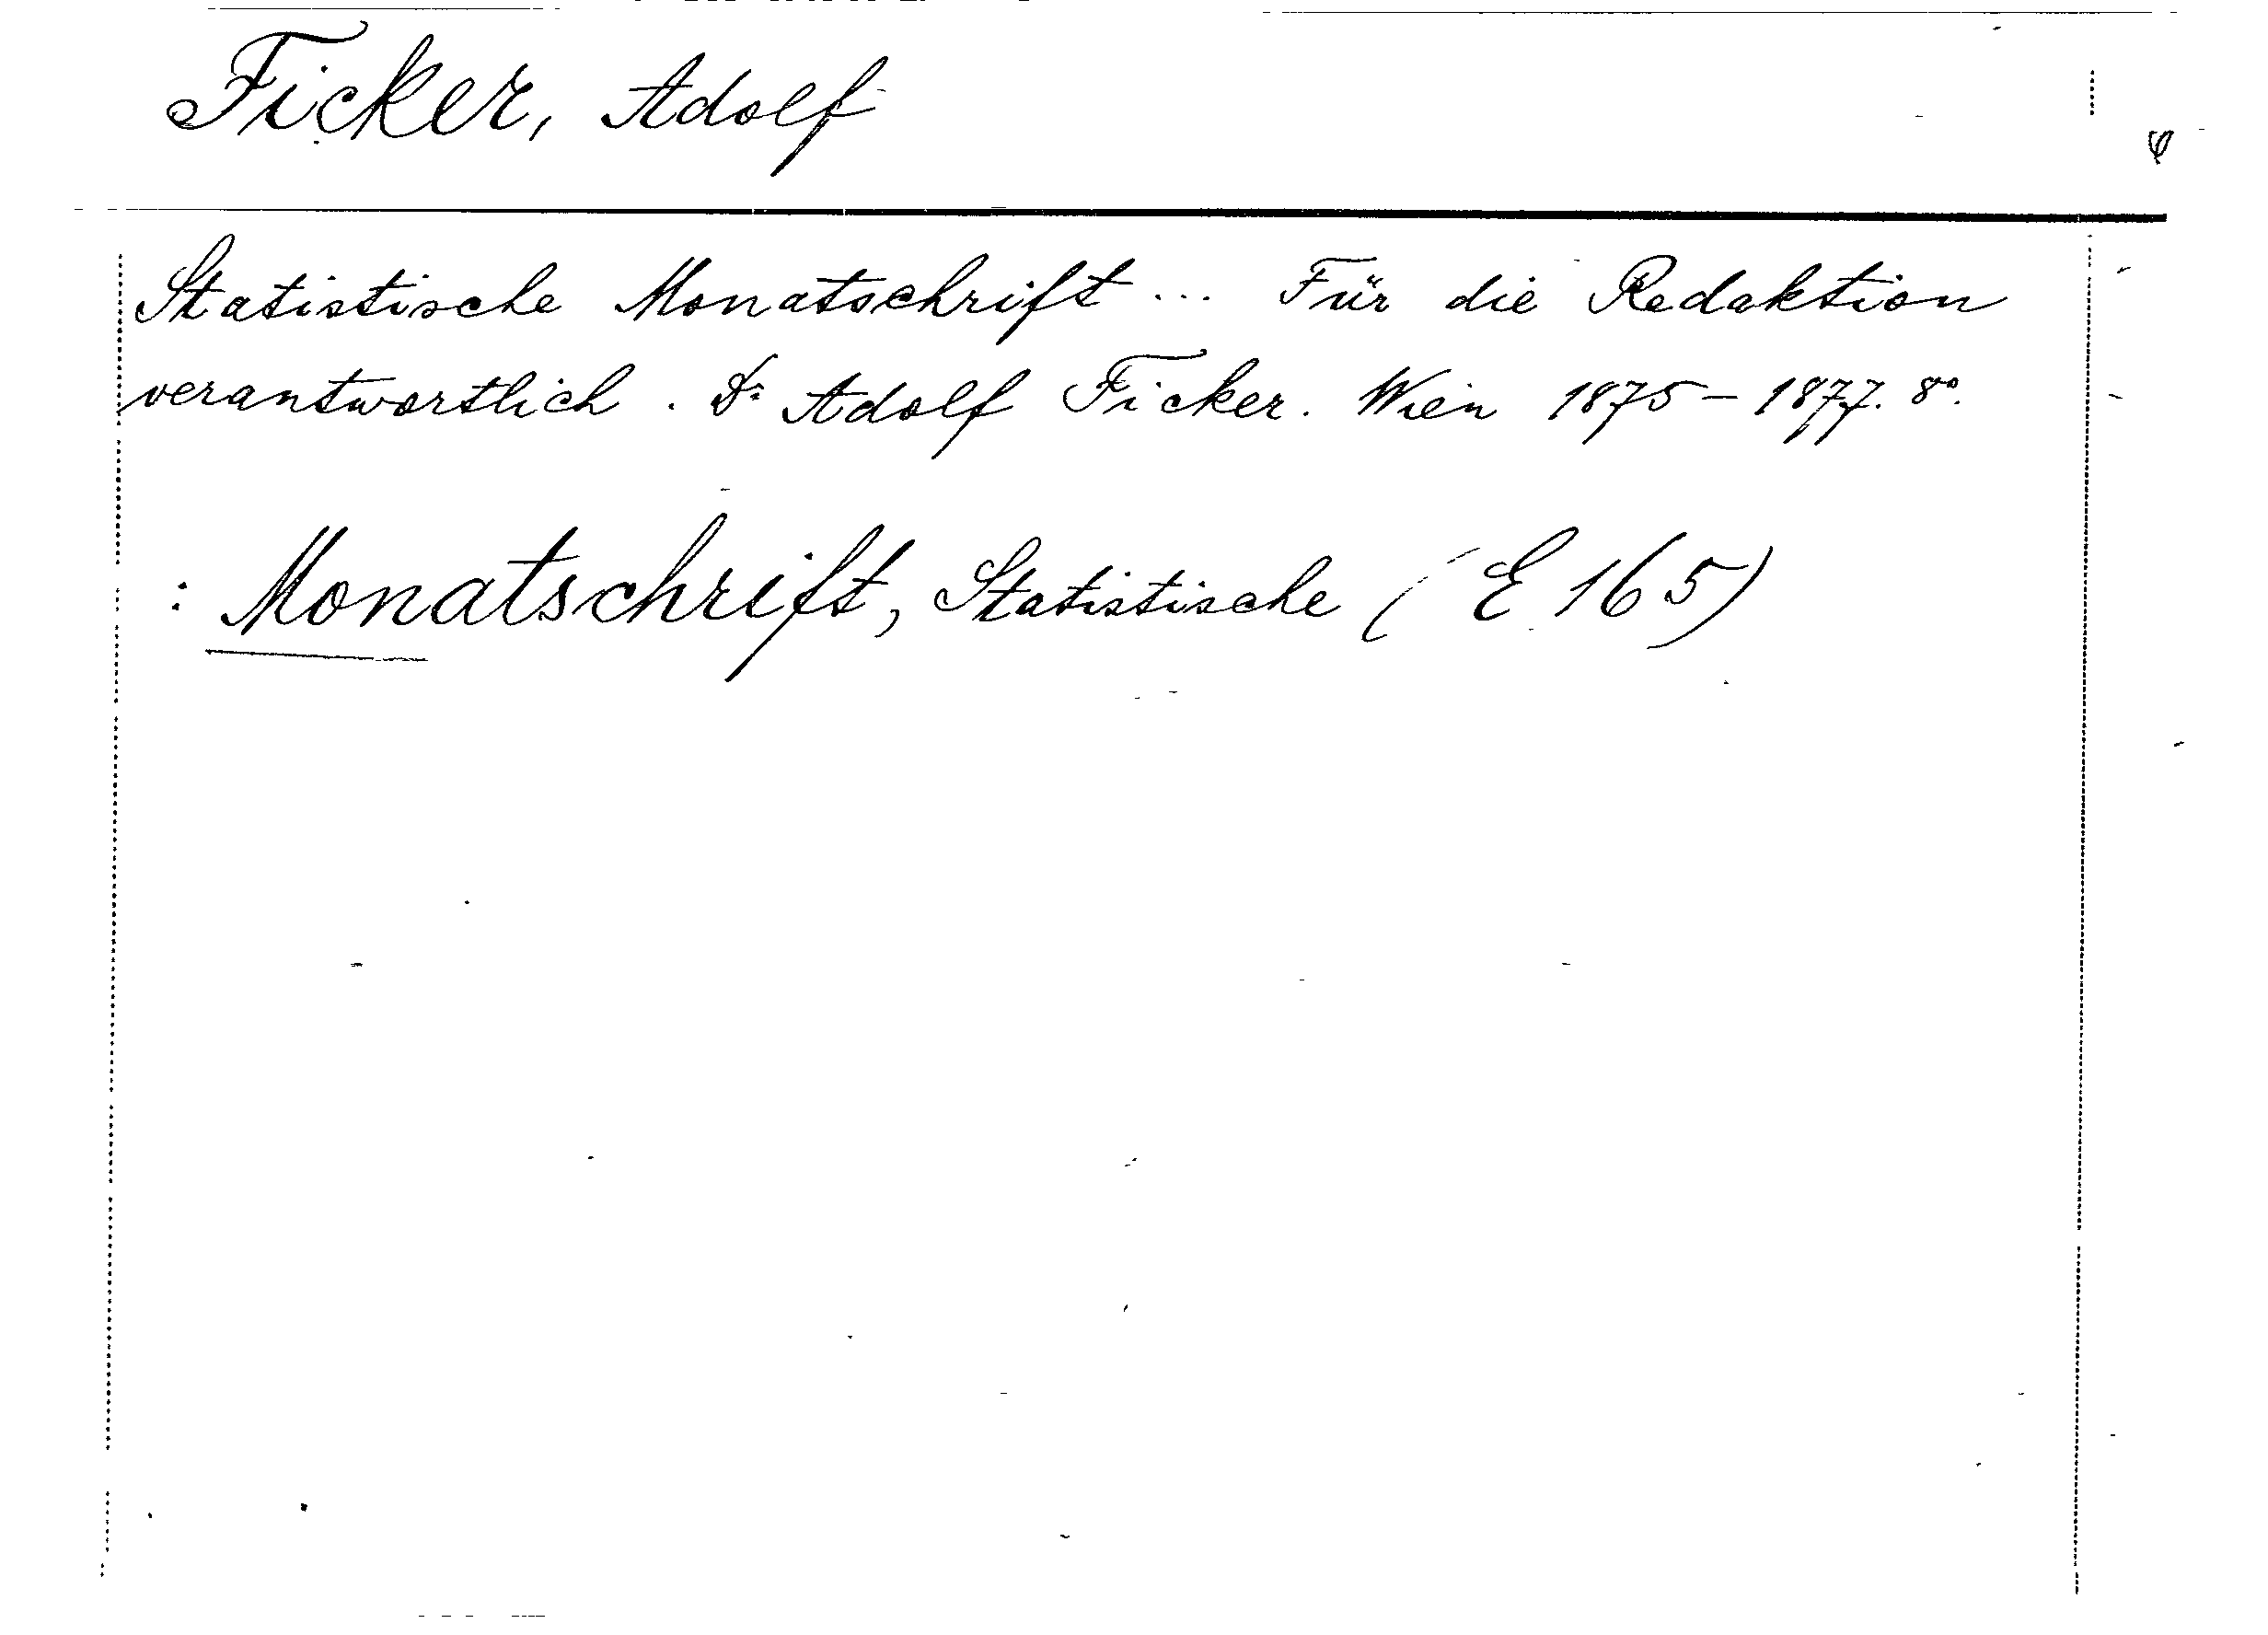 Ficker, Adolf
Statistische Monatschrift ... Für die Redaktion
verantwortlich. Dr Adolf Ficker. Wien 1875-1877. 8°.
: Monatschrift, Statistische (E 165)